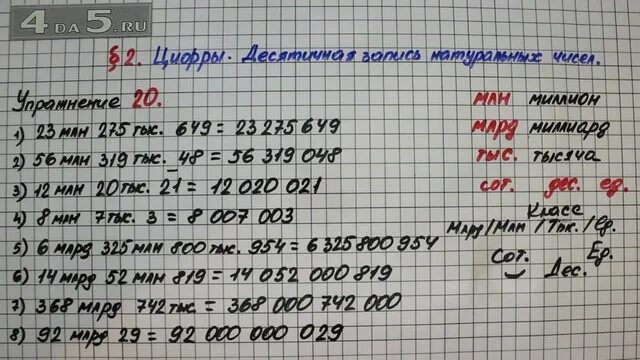 4DA5.RU
§2. Цифры. Десятичная запись натуральных чисел.
Упражнение 20.
1) 23 млн 275 тыс. 649 = 23 275 649
2) 56 млн 319 тыс. 48 = 56 319 048
3) 12 млн 20 тыс. 21 = 12 020 021
4) 8 млн 7 тыс. 3 = 8 007 003
5) 6 млрд 325 млн 800 тыс. 954 = 6 325 800 954
6) 14 млрд 52 млн 819 = 14 052 000 819
7) 368 млрд 742 тыс. = 368 000 742 000
8) 92 млрд 29 = 92 000 000 029
млн миллион
млрд миллиард
тыс. тысяча
сот. дес. ед.
Класс
Млрд/Млн/Тыс./Ед.
Сот. Ед.
Дес.